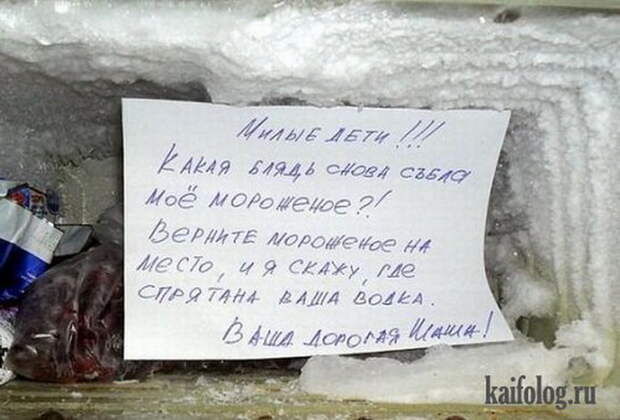 Милые дети!!!
Какая блядь снова съела
моё мороженое?!
Верните мороженое на
место, и я скажу, где
спрятана ваша водка.
Ваша дорогая Маша!
kaifolog.ru